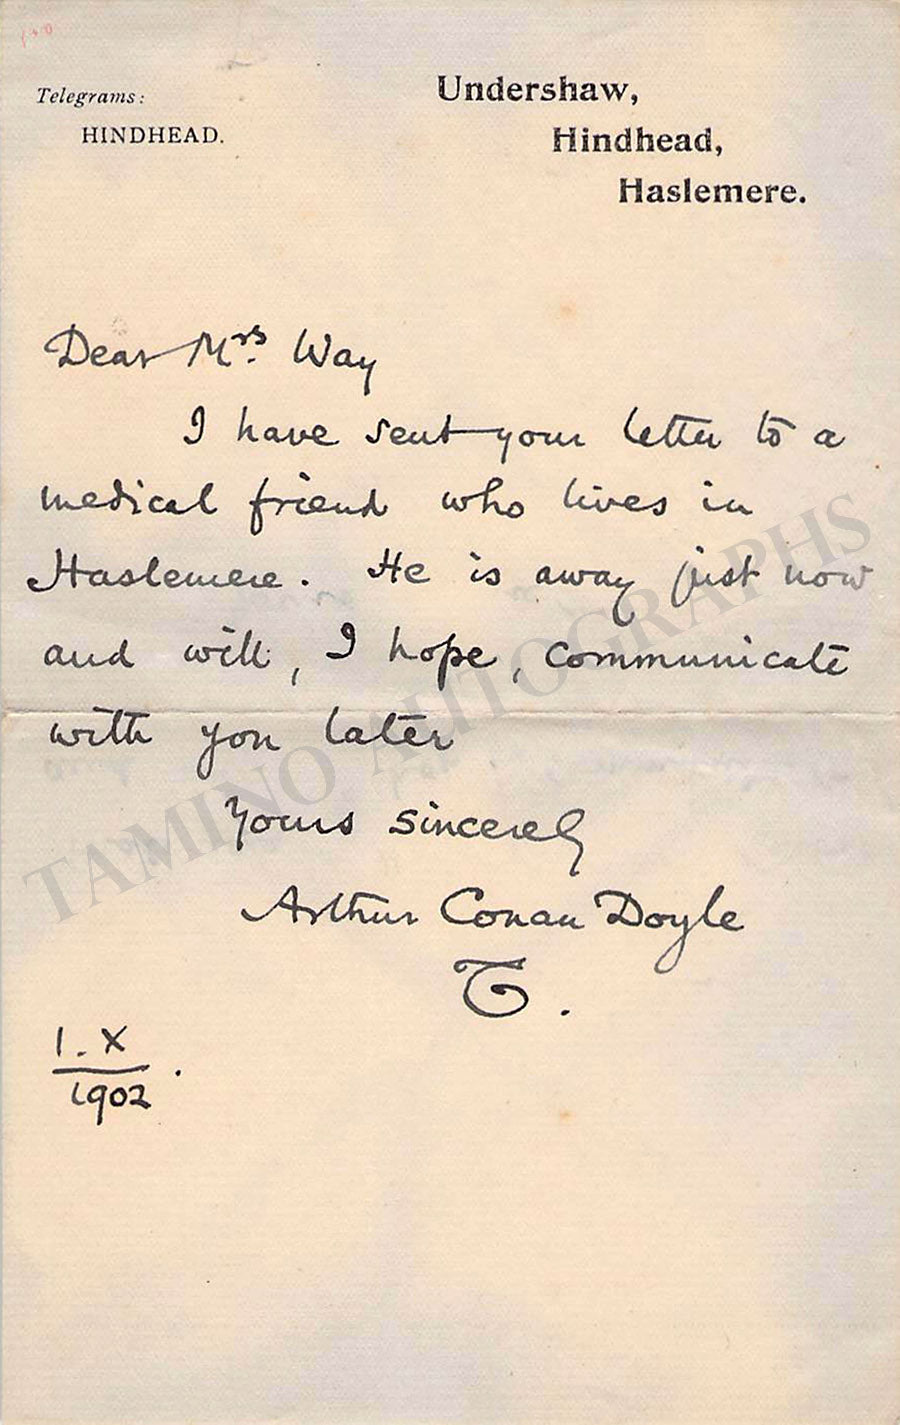 Telegrams:
HINDHEAD.
Undershaw,
Hindhead,
Haslemere.
Dear Mrs. Way
I have sent your letter to a
medical friend who lives in
Haslemere. He is away just now
and will, I hope, communicate
with you later
Yours sincerely
Arthur Conan Doyle
T.
1.X
1902.
TAMINO AUTOGRAPHS